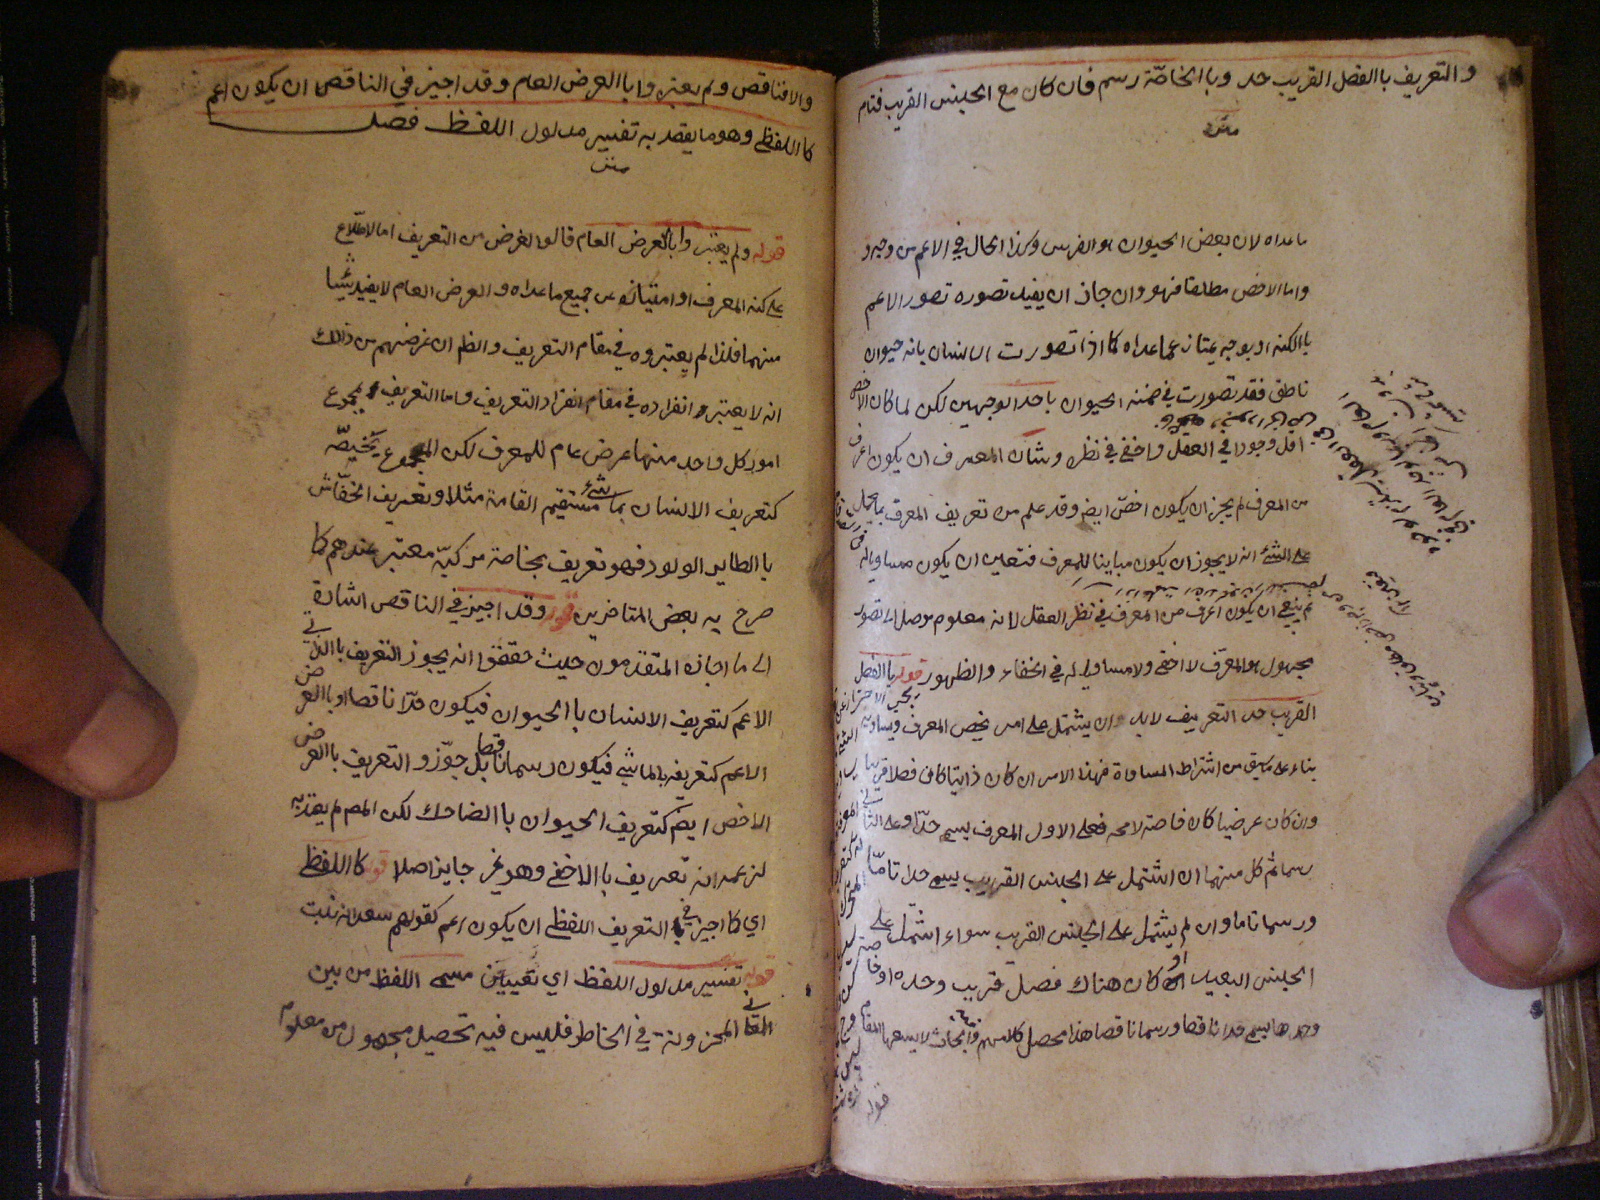 والتعريف باالفصل القريب حد وباالخاصّة رسم فان كان مع الجنس القريب فتام
متن
ماعداه لان بعض الحيوان هو الفرس وكذا الحال في الاعم من وجه و
واما الاخص مطلقا فهو وان جاز ان يفيد تصوره تصور الاعم
باالكنه او بوجه يمتاز عما عداه كما اذا تصورت الانسان بانه حيوان
ناطق فقد تصورت في ضمنه الحيوان باحد الوجهين لكن لما كان الاخص
اقل وجودا في العقل واخفى في نظره وشان المعرف ان يكون اعرف
من المعرف لم يجز ان يكون اخصّ ايضا وقد علم من تعريف المعرف بما يحمل
على الشئ انه لا يجوز ان يكون مباينا للمعرف فتعين ان يكون مساويا له
ثم ينبغي ان يكون اعرف من المعرف في نظر العقل لانه معلوم موصل الى تصور
مجهول هو المعرّف لا اخفى ولا مساويا له في الخفاء والظهور قوله باالفصل
القريب حد التعريف لابد وان يشتمل على امر يخص المعرف ويساويه
بناء على ما سبق من اشتراط المساواة فهذا الامر ان كان ذاتيا كان فصلا قريبا
وان كان عرضيا كان خاصة لا محه فعلى الاول المعرف يسمى حدّا وعلى الثاني
رسما ثم كل منهما ان اشتمل على الجنس القريب يسمى حدا تامّا
ورسما تاما وان لم يشتمل على الجنس القريب سواء اشتمل على
الجنس البعيد او كان هناك فصل قريب وحده او خاصة
وحدها يسمى حدا ناقصا ورسما ناقصا هذا محصل كلامهم وفيه ابحاث لا يسعها المقام
قوله
والا فناقص ولم يعتبروا باالعرض العام وقد اجيز في الناقص ان يكون اعم
كااللفظي وهو ما يقصد به تفسير مدلول اللفظ فصل
متن
قوله ولم يعتبروا باالعرض العام قالوا الغرض من التعريف اما الاطّلاع
على كنه المعرف او امتيازه عن جميع ماعداه والعرض العام لا يفيد شيئا
منهما فلذا لم يعتبروه في مقام التعريف والظ ان غرضهم من ذلك
انه لا يعتبر انفراده في مقام انفراد التعريف واما التعريف بمجموع
امور كل واحد منها عرض عام للمعرف لكن المجموع يخصّه
كتعريف الانسان بماشئ مستقيم القامة مثلا وتعريف الخفّاش
باالطاير الولود فهو تعريف بخاصة مركبّة معتبر عندهم كما
صرح به بعض المتاخرين قوله وقد اجيز في الناقص اشارة
الى ما اجازه المتقدمون حيث حققوا انه يجوز التعريف باالذاتي
الاعم كتعريف الانسان باالحيوان فيكون حدّا ناقصا او باالعرض
الاعم كتعريفه بالماشي فيكون رسما ناقصا بل جوّزو التعريف باالعرض
الاخص ايضا كتعريف الحيوان باالضاحك لكن المص لم يعتد به
لزعمه انه تعريف باالاخفى وهو غير جايز اصلا قوله كااللفظي
اي كما اجيز في التعريف اللفظي ان يكون اعم كقولهم سعدانة نبت
قوله تفسير مدلول اللفظ اي تعيين مسمى اللفظ من بين
المعاني المخزونة في الخاطر فليس فيه تحصيل مجهول من معلوم